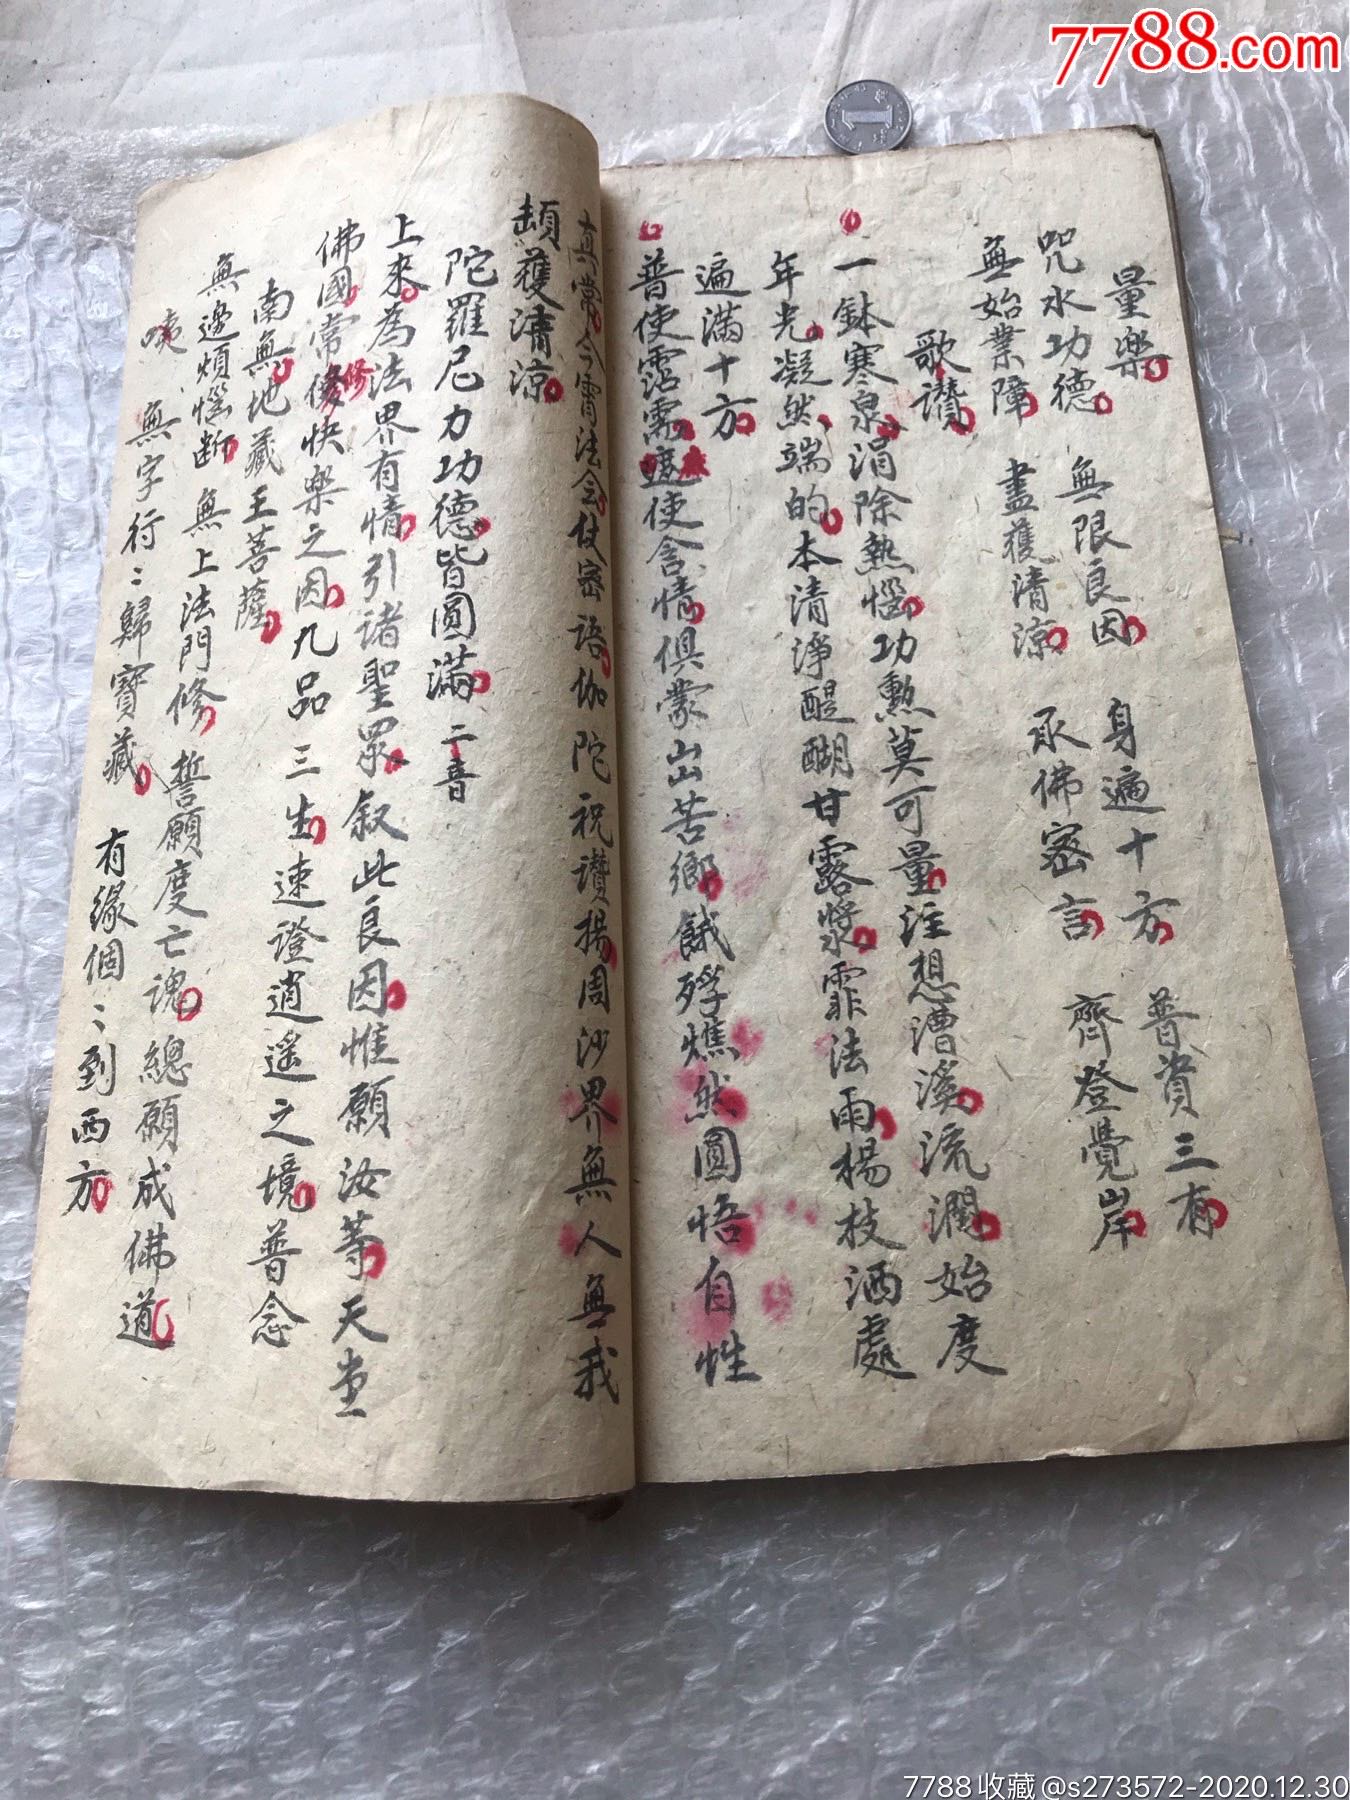 7788.com
量樂
咒水功德 無限良因 身遍十方 普資三有
無始業障 盡獲清涼 承佛密言 齊登覺岸
歌讚
一鉢寒泉涓除熱惱功勲莫可量注想漕溪流潤始度
年光凝然端的本清淨醍醐甘露漿霏法雨楊枝洒處
遍滿十方
普使霑需遮使含情俱蒙山苦鄉餓殍燋然圓悟自性
真常今霄法会仗密語伽陀祝讚揚周沙界無人無我
頡獲清涼
陀羅尼力功德皆圓滿 二音
上來為法界有情引诸聖眾叙此良因惟願汝等天堂
佛國常修快樂之因九品三生速證逍遥之境普念
修
南無地藏王菩薩
無邊煩惱断 無上法門修 誓願度亡魂 總願成佛道
唵 無字行〻歸寶藏 有缘個〻到西方
7788收藏@s273572-2020.12.30